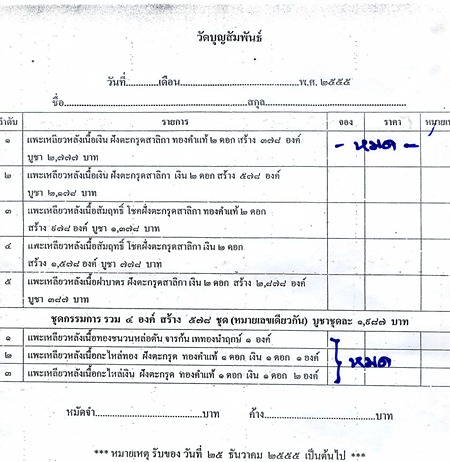 วัดบุญสัมพันธ์
วันที่..............เดือน..................................................พ.ศ. ๒๕๕๕
ชื่อ..................................................................สกุล..................................................
ลำดับ รายการ จอง ราคา หมายเห
๑ แพะเหลียวหลังเนื้อเงิน ฝังตะกรุดสาลิกา ทองคำแท้ ๒ ดอก สร้าง ๓๗๘ องค์ - หมด -
บูชา ๒,๗๗๗ บาท
๒ แพะเหลียวหลังเนื้อเงิน ฝังตะกรุดสาลิกา เงิน ๒ ดอก สร้าง ๕๗๘ องค์
บูชา ๒,๑๗๘ บาท
๓ แพะเหลียวหลังเนื้อสัมฤทธิ์ โชคฝังตะกรุดสาลิกา ทองคำแท้ ๒ ดอก
สร้าง ๙๗๘ องค์ บูชา ๑,๓๗๘ บาท
๔ แพะเหลียวหลังเนื้อสัมฤทธิ์ โชคฝังตะกรุดสาลิกา เงิน ๒ ดอก
สร้าง ๑,๕๗๘ องค์ บูชา ๗๗๘ บาท
๕ แพะเหลียวหลังเนื้อฝาบาตร ฝังตะกรุดสาลิกา เงิน ๒ ดอก สร้าง ๒,๘๗๘ องค์
บูชา ๓๘๗ บาท
ชุดกรรมการ รวม ๔ องค์ สร้าง ๕๗๘ ชุด (หมายเลขเดียวกัน) บูชาชุดละ ๑,๙๘๗ บาท
๑ แพะเหลียวหลังเนื้อทองชนวนหล่อตัน จารก้น เททองนำฤกษ์ ๑ องค์
๒ แพะเหลียวหลังเนื้อกะไหล่ทอง ฝังตะกรุด ทองคำแท้ ๑ ดอก เงิน ๑ ดอก ๑ องค์ หมด
๓ แพะเหลียวหลังเนื้อกะไหล่เงิน ฝังตะกรุด ทองคำแท้ ๑ ดอก เงิน ๑ ดอก ๒ องค์
หมัดจำ..............................บาท ค้าง........................................บาท
*** หมายเหตุ รับของ วันที่ ๒๕ ธันวาคม ๒๕๕๕ เป็นต้นไป ***